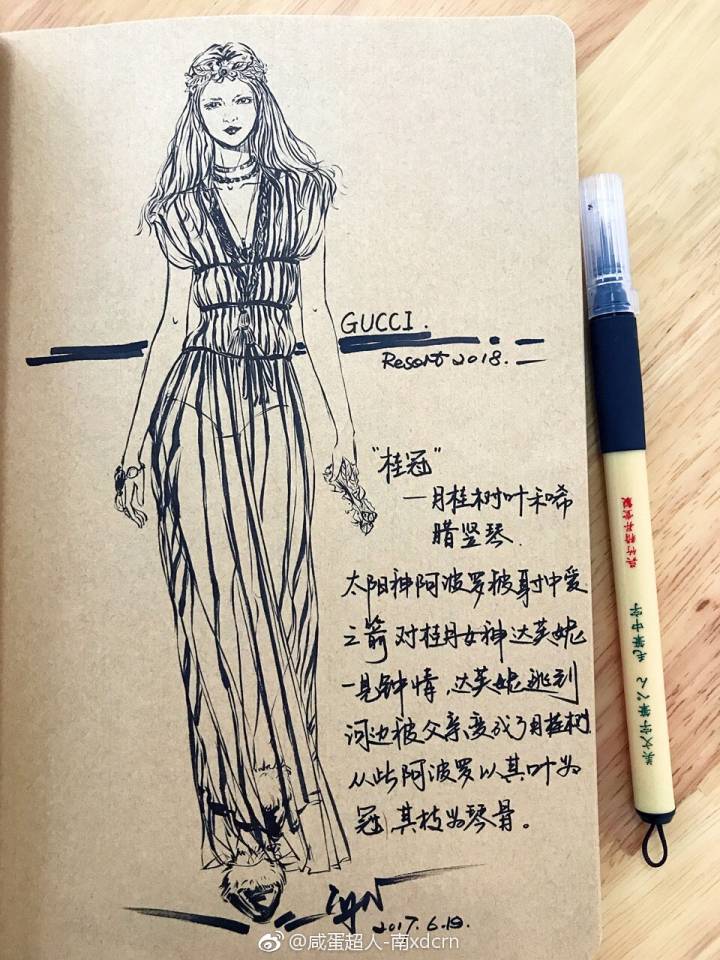 GUCCI.
Resort 2018.
"桂冠"
—月桂树叶和唏
腊竖琴.
太阳神阿波罗被射中爱
之箭对桂月女神达芙妮
一见钟情,达芙妮逃到
河边被父亲变成了月桂树.
从此阿波罗以其叶为
冠,其枝为琴骨。
2017.6.18.
呉竹精昇堂製
美文字筆ぺん 毛筆中字
@咸蛋超人-南xdcrn